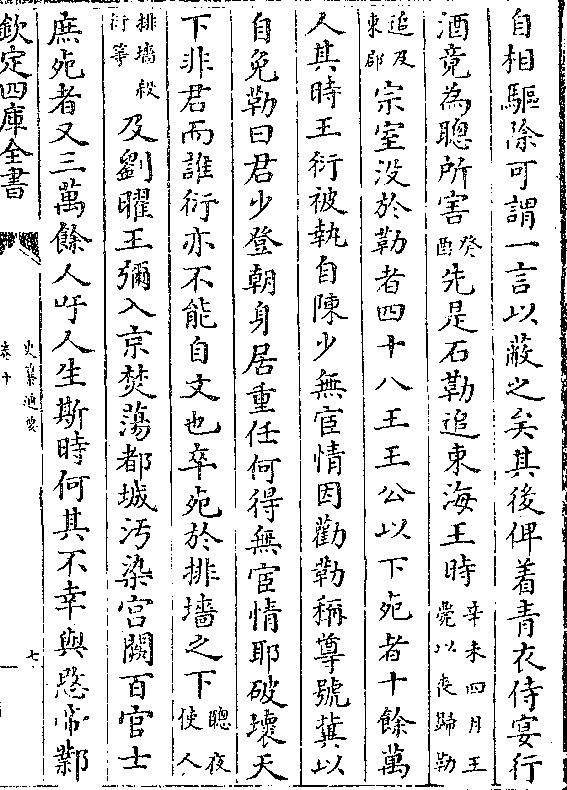 自相驅除可謂一言以蔽之矣其後俾着青衣侍宴行
酒竟為聰所害癸酉先是石勒追東海王時辛未四月王薨以喪歸勒
追及東郡宗室没於勒者四十八王王公以下死者十餘萬
人其時王衍被執自陳少無宦情因勸勒稱尊號冀以
自免勒曰君少登朝身居重任何得無宦情耶破壞天
下非君而誰衍亦不能自文也卒死於排墻之下聰夜使人
排墻殺衍等及劉曜王彌入京焚蕩都城汚染宫闕百官士
庶死者又三萬餘人吁人生斯時何其不幸與愍帝鄴
欽定四庫全書
史纂通要
卷十
七